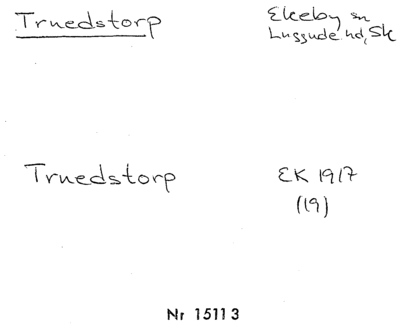 Truedstorp
Ekeby sn
Luggude hd, Sk
Truedstorp
EK 1917
(19)
Nr 15113